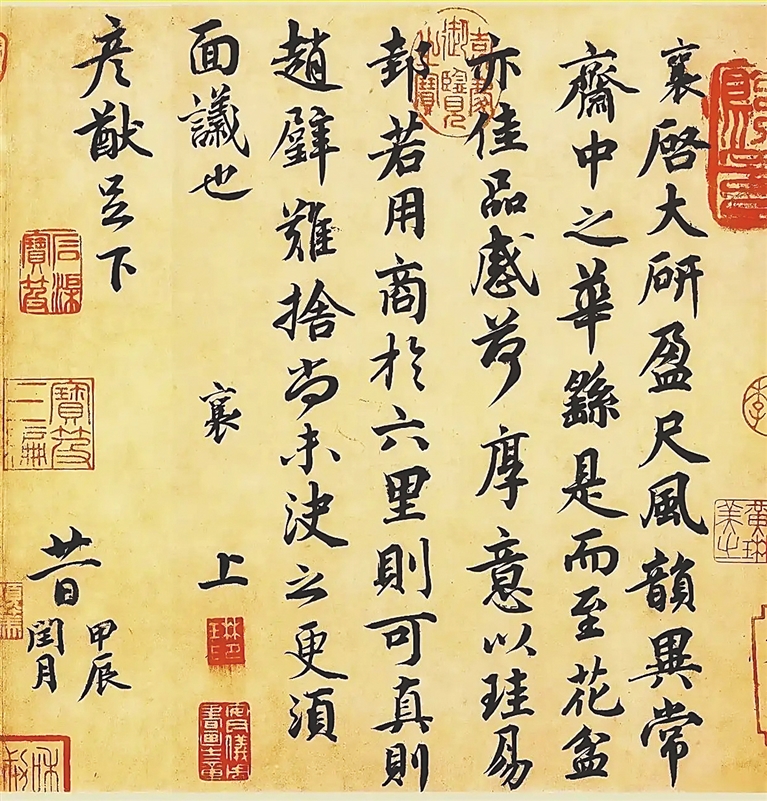 襄啓大研盈尺風韻異常
齋中之華繇是而至花盆
亦佳品感荷厚意以珪易
邽若用商於六里則可真則
趙璧難捨尚未決之更須
面議也 襄 上
彥猷足下
廿一日
甲辰
閏月
嘉慶御覽之寶